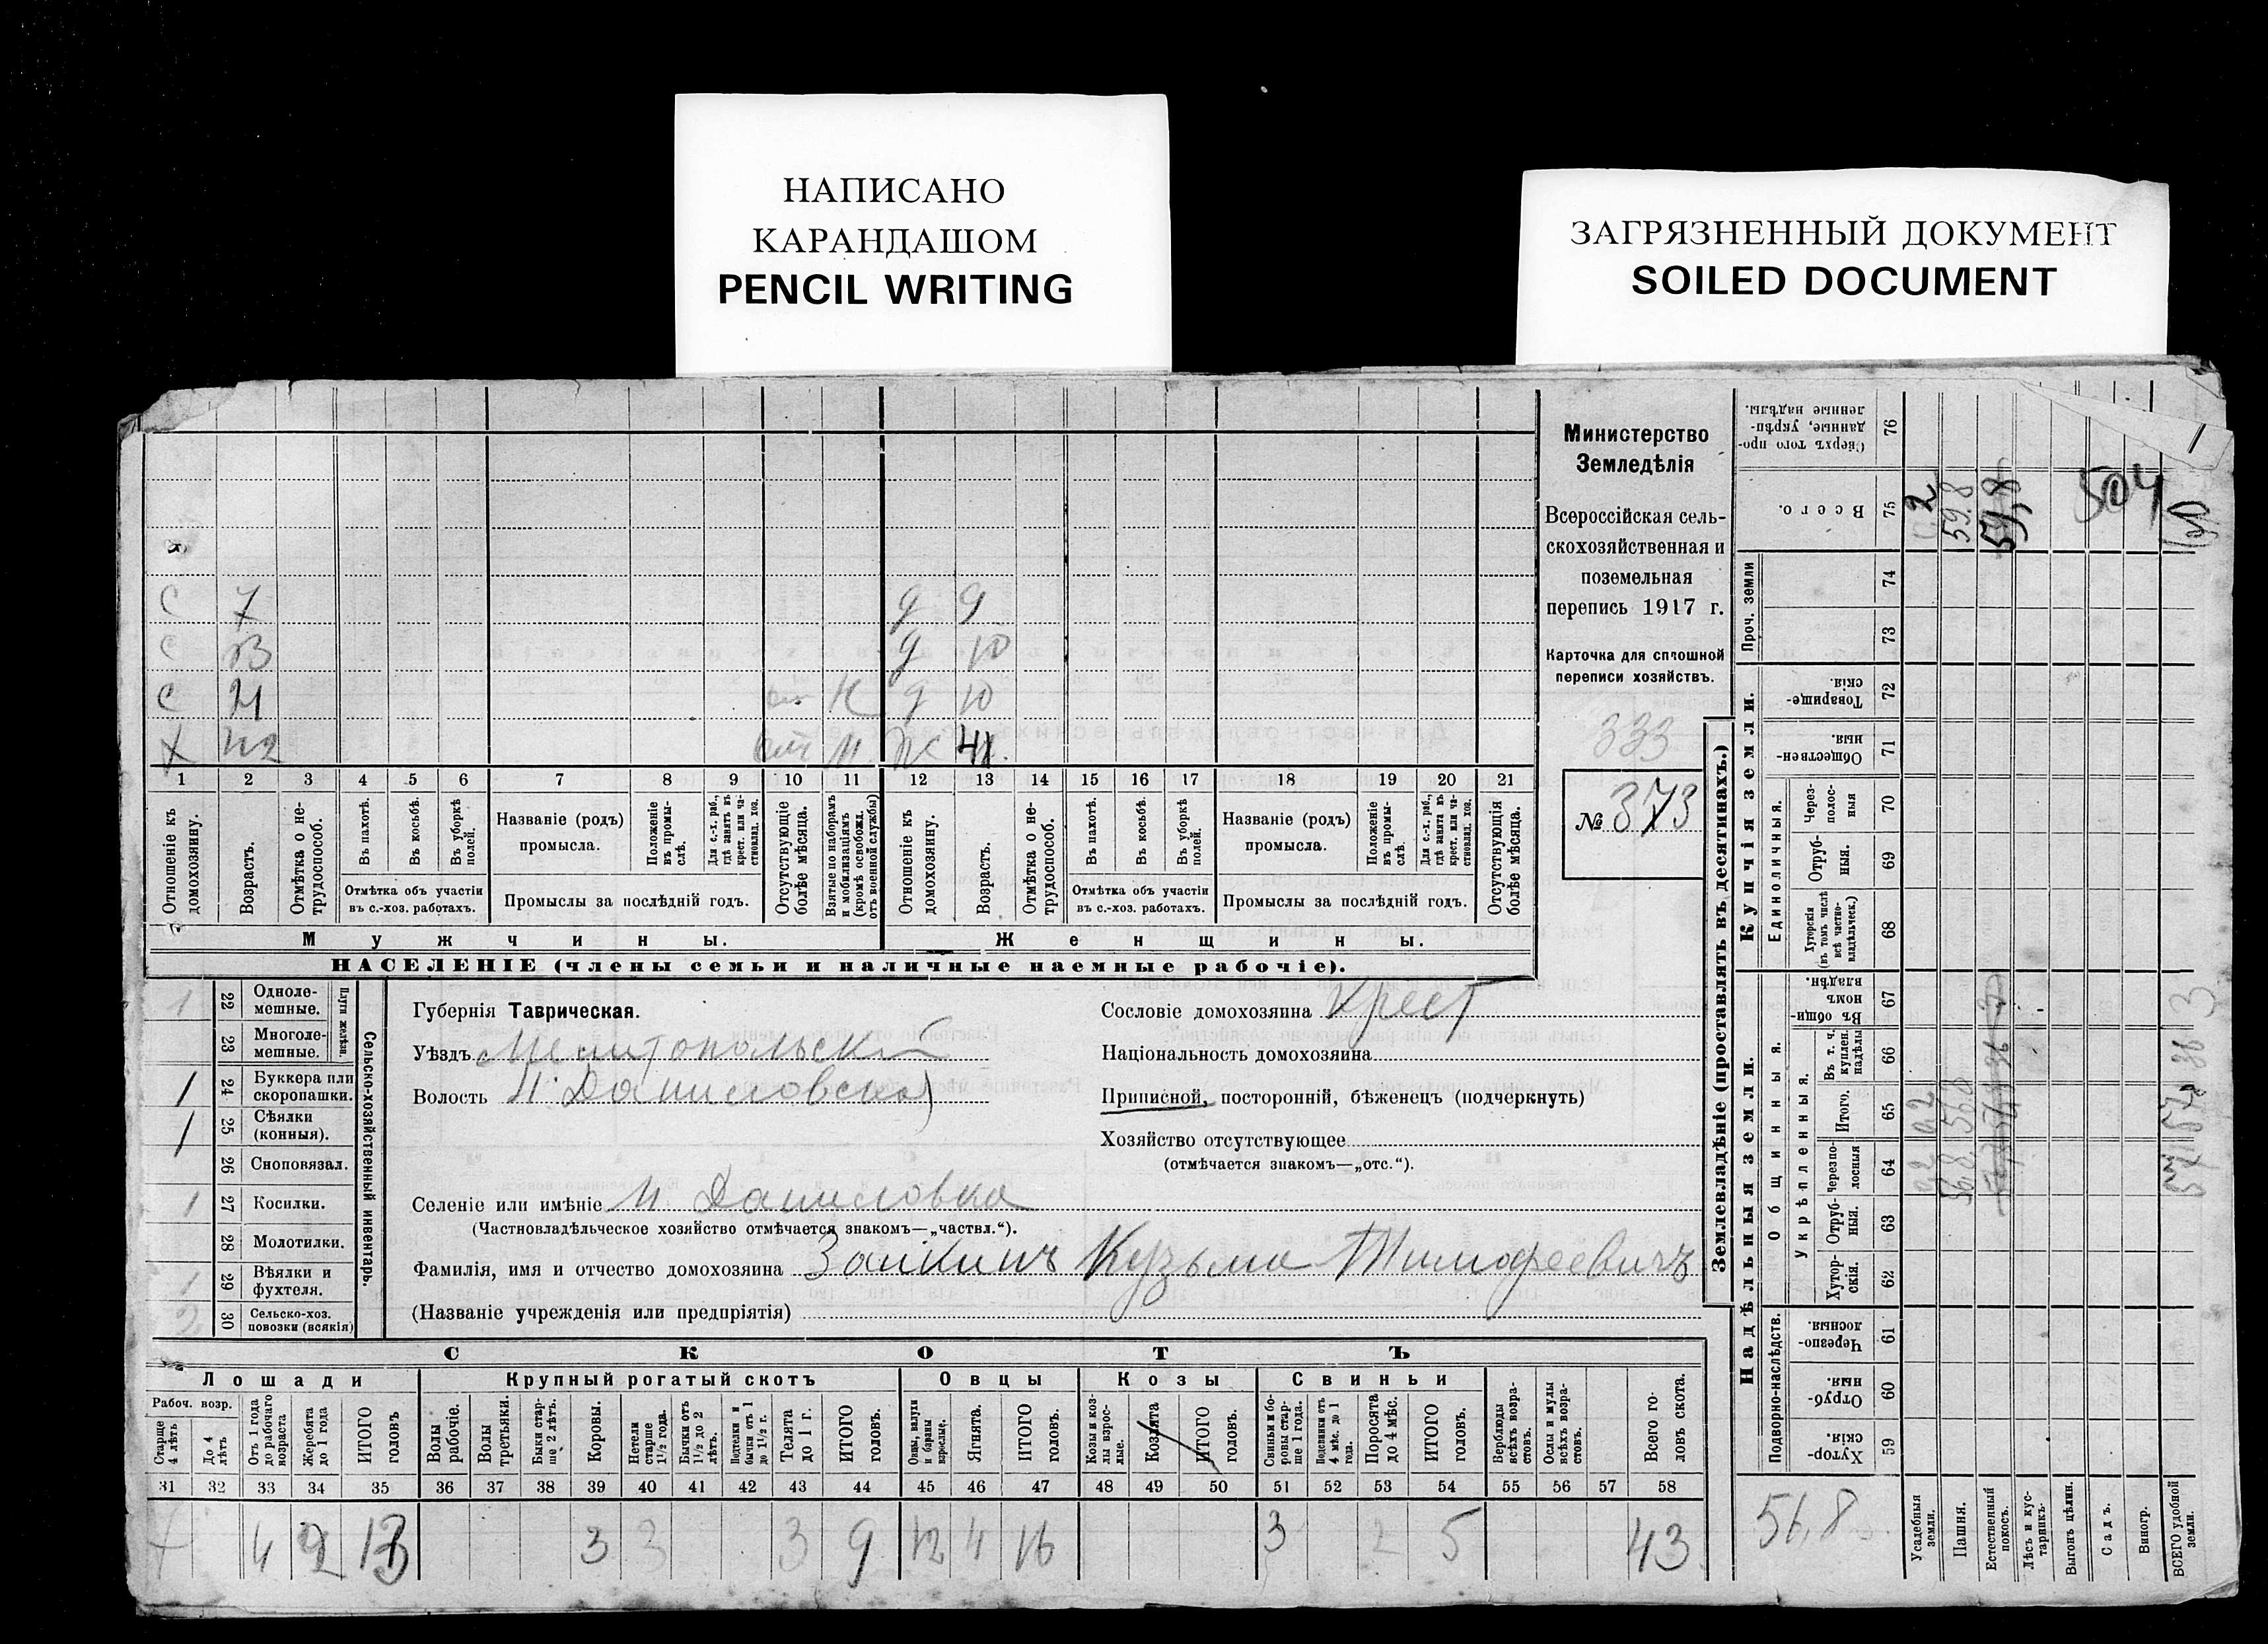 НАПИСАНО
КАРАНДАШОМ
PENCIL WRITING
ЗАГРЯЗНЕННЫЙ ДОКУМЕНТ
SOILED DOCUMENT
Министерство
Земледѣлія
Всероссійская сель-
скохозяйственная и
поземельная
перепись 1917 г.
Карточка для сплошной
переписи хозяйствъ.
333
№ 373
С 7 д 9
С 13 д 10
С 21 Н д 10
Х 42 М. Ж 41
1 2 3 4 5 6 7 8 9 10 11 12 13 14 15 16 17 18 19 20 21
Отношеніе къ домохозяину.
Возрастъ.
Отмѣтка о не-
трудоспособ.
Въ пахотѣ.
Въ косьбѣ.
Въ уборкѣ
полей.
Отмѣтка объ участіи
въ с.-хоз. работахъ.
Названіе (родъ)
промысла.
Положеніе
въ промы-
слѣ.
Для с.-х. раб.,
гдѣ занятъ въ
крест. или ча-
стновлад. хоз.
Промыслы за послѣдній годъ.
Отсутствующіе
болѣе мѣсяца.
Взятые по наборамъ
и мобилизаціямъ
(кромѣ освобожд.
отъ военной службы)
Отношеніе къ
домохозяину.
Возрастъ.
Отмѣтка о не-
трудоспособ.
Въ пахотѣ.
Въ косьбѣ.
Въ уборкѣ
полей.
Отмѣтка объ участіи
въ с.-хоз. работахъ.
Названіе (родъ)
промысла.
Положеніе
въ промы-
слѣ.
Для с.-х. раб.,
гдѣ занята въ
крест. или ча-
стновлад. хоз.
Промыслы за послѣдній годъ.
Отсутствующія
болѣе мѣсяца.
Мужчины.
Женщины.
НАСЕЛЕНІЕ (члены семьи и наличные наемные рабочіе).
1 22 Одноле-
мешные.
23 Многоле-
мешные.
Плуги желѣзн.
1 24 Буккера или
скоропашки.
1 25 Сѣялки
(конныя).
26 Сноповязал.
1 27 Косилки.
28 Молотилки.
1 29 Вѣялки и
фухтеля.
2 30 Сельско-хоз.
повозки (всякія)
Сельско-хозяйственный инвентарь.
Губернія Таврическая.
Уѣздъ Мелитопольскій
Волость Н. Даниловская
Селеніе или имѣніе Н. Даниловка
(Частновладѣльческое хозяйство отмѣчается знакомъ—„частвл.“).
Фамилія, имя и отчество домохозяина Заикинъ Кузьма Тимофеевичъ
(Названіе учрежденія или предпріятія)
Сословіе домохозяина Крест
Національность домохозяина
Приписной, посторонній, бѣженецъ (подчеркнуть)
Хозяйство отсутствующее
(отмѣчается знакомъ—„отс.“).
СКОТЪ
Лошади
Крупный рогатый скотъ
Овцы
Козы
Свиньи
Рабоч. возр.
Старше
4 лѣтъ
До 4
лѣтъ
Отъ 1 года
до рабочаго
возраста
Жеребята
до 1 года
ИТОГО
головъ
Волы
рабочіе.
Волы
третьяки.
Быки стар-
ше 2 лѣтъ.
Коровы.
Нетели
старше
1½ года.
Бычки отъ
1½ до 2
лѣтъ.
Подтелки и
бычки отъ 1
до 1½ г.
Телята
до 1 г.
ИТОГО
головъ.
Овцы, валухи
и бараны
взрослые.
Ягнята.
ИТОГО
головъ.
Козы и коз-
лы взрос-
лые.
Козлята
ИТОГО
головъ.
Свиньи и бо-
ровы стар-
ше 1 года.
Подсвинки отъ
4 мѣс. до 1
года.
Поросята
до 4 мѣс.
ИТОГО
головъ.
Верблюды
всѣхъ возра-
стовъ.
Ослы и мулы
всѣхъ возра-
стовъ.
Всего го-
ловъ скота.
31 32 33 34 35 36 37 38 39 40 41 42 43 44 45 46 47 48 49 50 51 52 53 54 55 56 57 58
4 2 13 3 3 3 9 12 4 16 3 2 5 43
Землевладѣніе (проставлять въ десятинахъ.)
Надѣльныя земли.
Купчія земли.
Проч. земли
Подворно-наслѣдств.
Общинныя.
Укрѣпленныя.
Единоличныя.
Хутор-
скія 59
Отруб-
ныя. 60
Черезпо-
лосныя. 61
Хутор-
скія. 62
Отруб-
ныя. 63
Черезпо-
лосныя 64
Итого. 65
Въ т. ч.
куплен.
надѣлы 66
Въ общи-
номъ
владѣн. 67
Хуторскія
(въ томъ числѣ
всѣ частно-
владѣльческ.) 68
Отруб-
ныя. 69
Через-
полос-
ныя 70
Обществен-
ныя. 71
Товарище-
скія. 72
73
74
Всего. 75
Сверхъ того про-
данные, укрѣп-
ленные надѣлы. 76
Усадебныя
земли.
Пашня.
Естественный
покосъ.
Лѣсъ и кус-
тарникъ.
Выгонъ цѣлин.
Садъ.
Виногр.
ВСЕГО удобной
земли.
56,8
56.8 56.8
59.8
504
60